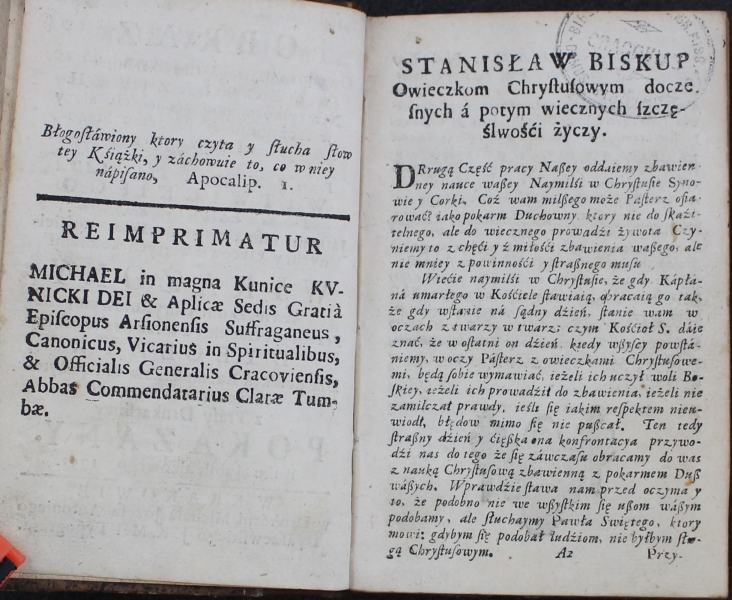 Błogosłáwiony ktory czyta y słucha słow
tey Kśiążki, y záchowuie to, co w niey
nápisano, Apocalip. 1.
REIMPRIMATUR
MICHAEL in magna Kunice KV-
NICKI DEI & Aplicæ Sedis Gratiâ
Episcopus Arsionensis Suffraganeus,
Canonicus, Vicarius in Spiritualibus,
& Officialis Generalis Cracoviensis,
Abbas Commendatarius Claræ Tum-
bæ.
STANISŁAW BISKUP
Owieczkom Chrystusowym docze.
snych á potym wiecznych szczę-
śliwośći życzy.
DRrugą Część pracy Naßey oddaiemy zbawien-
ney nauce waßey Naymilśi w Chrystuśie Syno-
wie y Corki. Coż wam milßego może Pásterz ofia-
rować? iáko pokarm Duchowny, ktory nie do skáźi-
telnego, ale do wiecznego prowadźi żywota Czy-
niemy to z chęći y z miłośći zbawienia waßego, ale
nie mniey z powinnośći y straßnego musu
Wiećie naymilśi w Chrystuśie, że gdy Kápła-
ná umarłego w Kośćiele stawiaią, obracaią go ták,
że gdy wstánie ná sądny dźień, stanie wam w
oczach z twarzy w twarz; czym Kośćioł S. dáie
znáć, że w ostatni on dźień, kiedy wßyscy powstá-
niemy, w oczy Pásterz z owieczkami Chrystusowe-
mi, będą sobie wymawiáć, ieżeli ich uczył woli Bo-
skiey, ieżeli ich prowádźił do zbáwienia, ieżeli nie
zamilczał prawdy, ieśli się iakim respektem nieu-
wiodł, błędow mimo się nie pußczał. Ten tedy
straßny dźień y ćięßka ona konfrontacya przywo-
dźi nas do tego że się záwczasu obracamy do was
z nauką Chrystusową zbawienną z pokarmem Duß
wáßych. Wprawdźie stawa nam przed oczyma y
to, że podobno nie we wßystkim się ußom wáßym
podobamy, ale słuchaymy Pawłá Swiętego, ktory
mowi; gdybym się podobał ludźiom, nie byłbym słu-
gą Chrystusowym. A2 Przy-